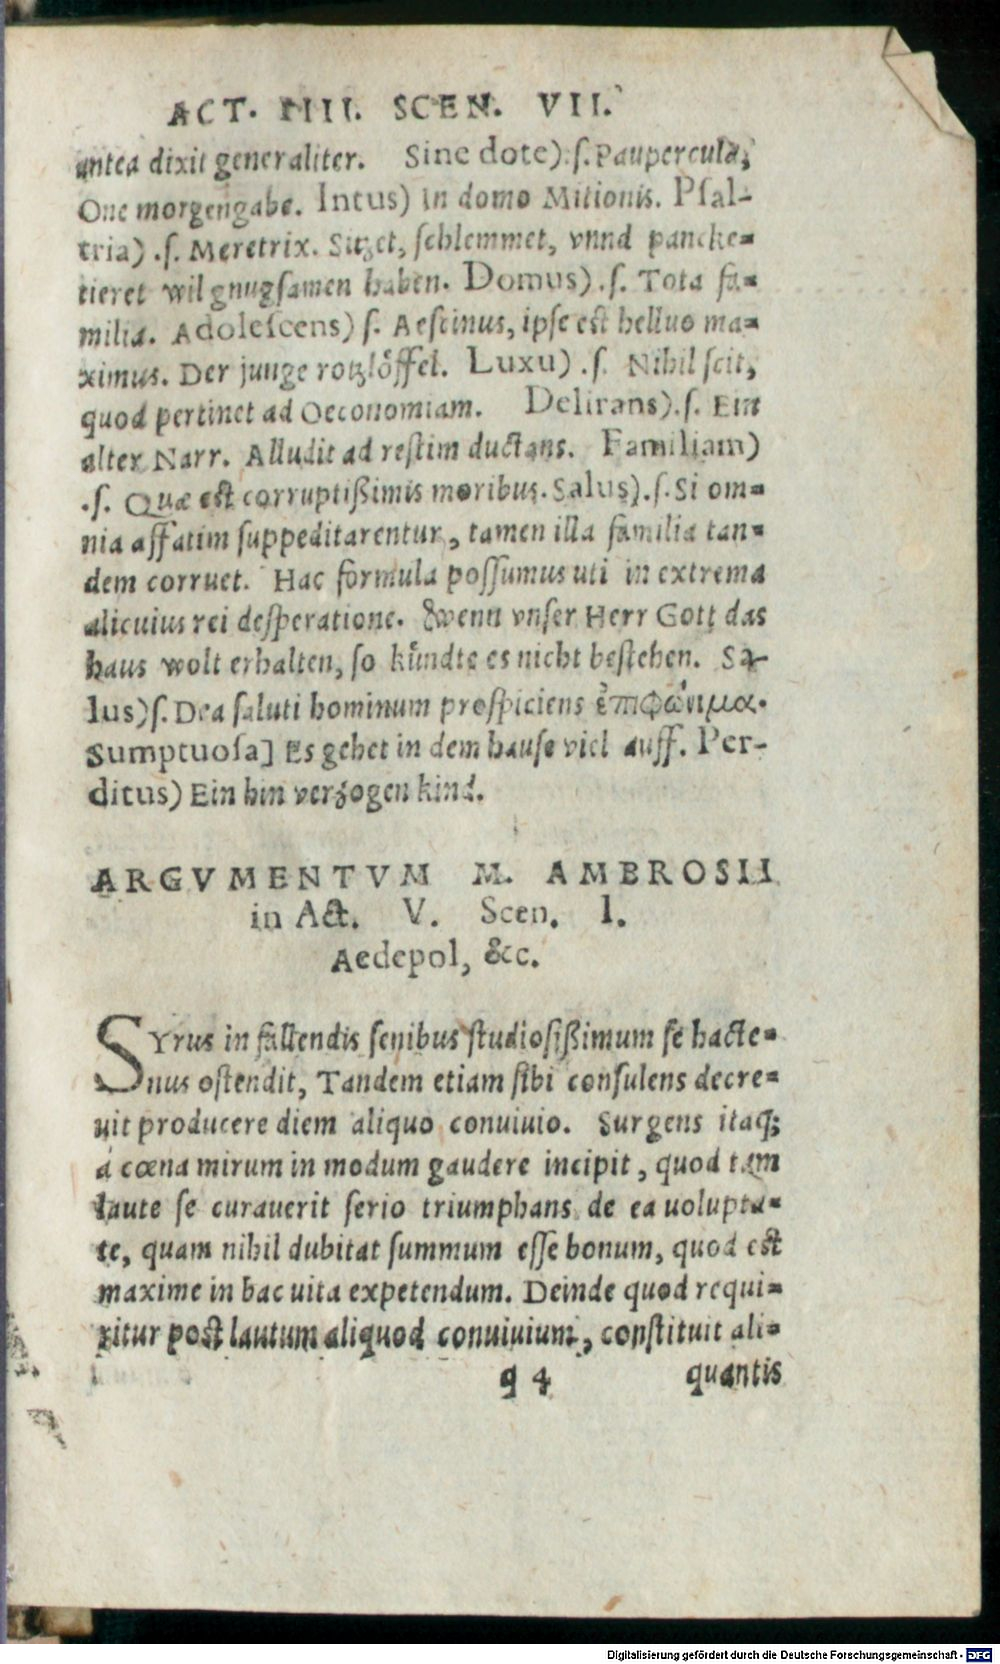 ACT. IIII. SCEN. VII.
antea dixit generaliter. Sine dote).ſ. Paupercula,
One morgengabe. Intus) in domo Mitionis. Pſal-
tria) .ſ. Meretrix. Sitzet, ſchlemmet, vnnd pancke-
tieret wil gnugſamen haben. Domus) .ſ. Tota fa-
milia. Adoleſcens) ſ. Aeſcinus, ipſe est helluo ma-
ximus. Der junge rotzlöffel. Luxu) .ſ. Nihil ſcit,
quod pertinet ad Oeconomiam. Delirans).ſ. Ein
alter Narr. Alludit ad reſtim ductans. Familiam)
.ſ. Quæ est corruptißimis moribus. Salus).ſ. Si om-
nia affatim ſuppeditarentur, tamen illa familia tan-
dem corruet. Hac formula poſſumus uti in extrema
alicuius rei deſperatione. &wenn vnſer Herr Gott das
haus wolt erhalten, ſo kündte es nicht beſtehen. Sa-
lus)ſ. Dea ſaluti hominum proſpiciens ἐπιφώνημα.
Sumptuoſa] Es gehet in dem hauſe viel auff. Per-
ditus) Ein hin verzogen kind.
ARGVMENTVM M. AMBROSII
in Act. V. Scen. I.
Aedepol, &c.
SYrus in fallendis ſenibus ſtudioſißimum ſe hacte-
nus oſtendit, Tandem etiam ſibi conſulens decre-
uit producere diem aliquo conuiuio. Surgens itaq;
à cœna mirum in modum gaudere incipit, quod tam
laute ſe curauerit ſerio triumphans de ea uolupta-
te, quam nihil dubitat ſummum eſſe bonum, quod est
maxime in hac uita expetendum. Deinde quod requi-
ritur post lautum aliquod conuiuium, conſtituit ali-
q 4 quantis
Digitalisierung gefördert durch die Deutsche Forschungsgemeinschaft - DFG